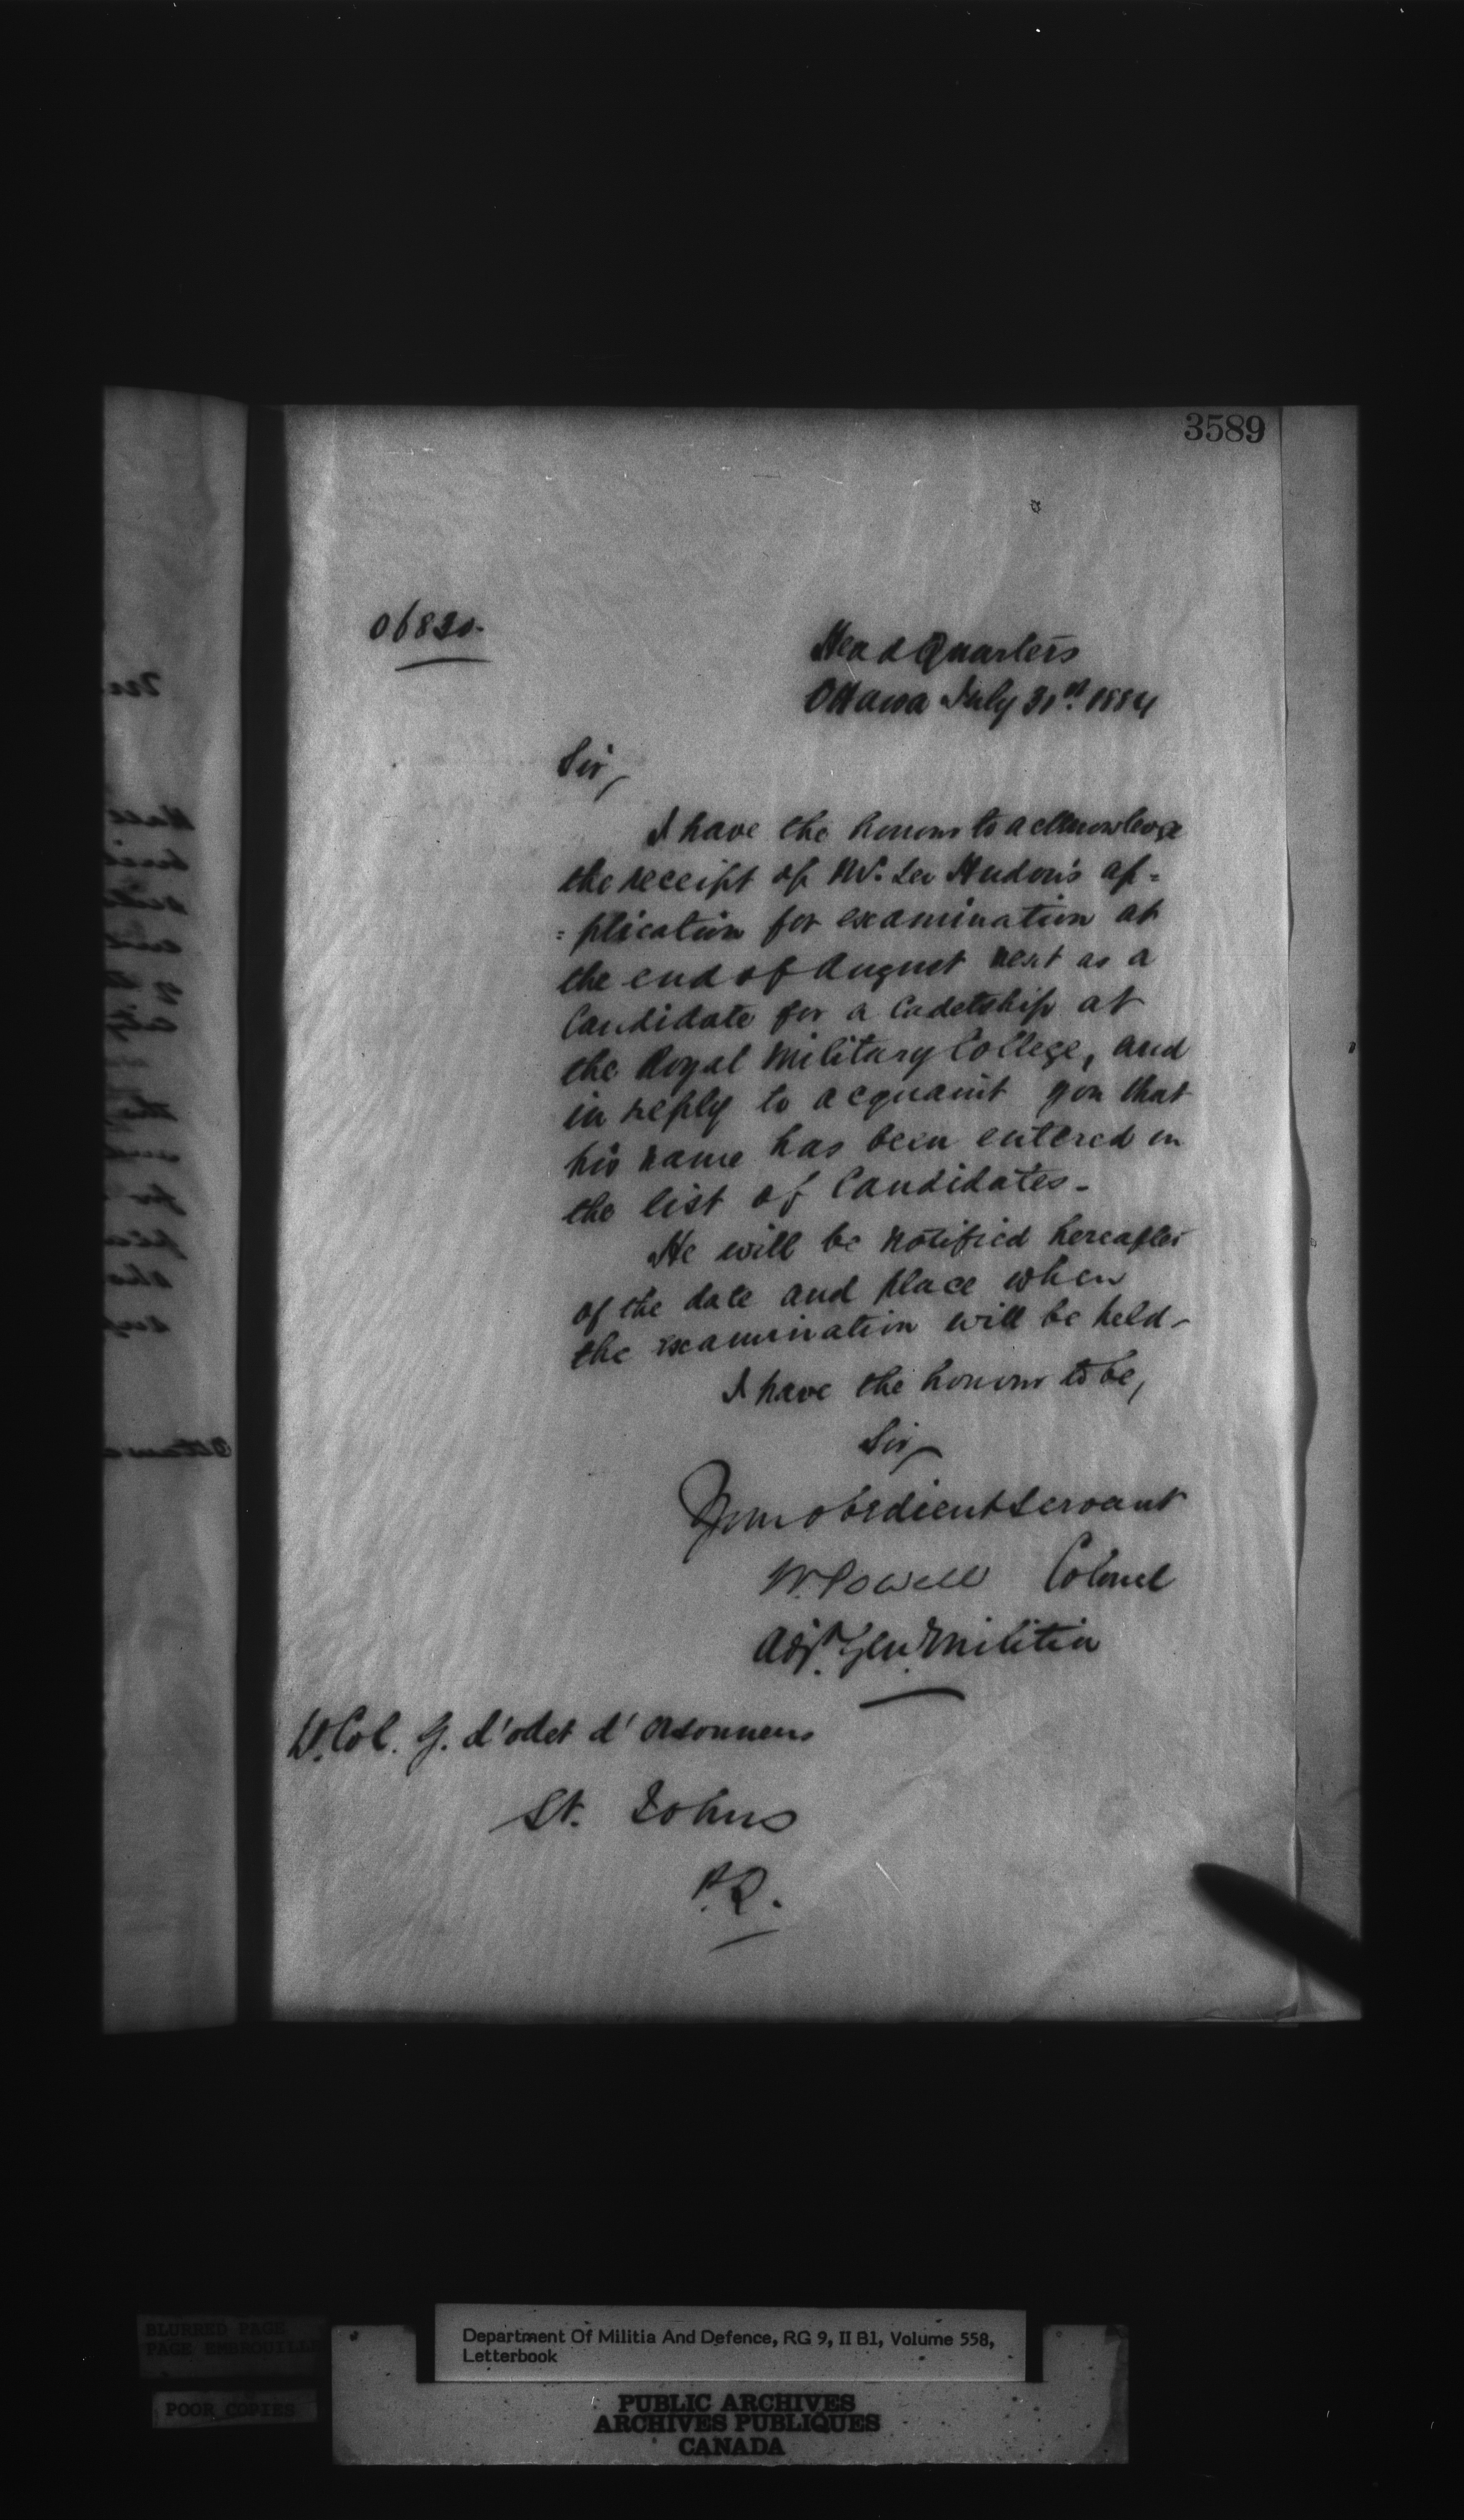 3589
06830.
Head Quarters
Ottawa July 31st. 1884
Sir,
I have the honour to acknowledge
the receipt of Mr. Leo Hudon's ap=
=plication for examination at
the end of August next as a
Candidate for a Cadetship at
the Royal Military College, and
in reply to acquaint you that
his name has been entered on
the list of Candidates-
He will be notified hereafter
of the date and place when
the examination will be held-
I have the honour to be,
Sir,
Your obedient servant
W. Powell Colonel
Adjt. Gen. Militia
Lt. Col. G. d'odet d'orsonnens
St. Johns
P.Q.
Ottawa
BLURRED PAGE
PAGE EMBROUILLE
POOR COPIES
Department Of Militia And Defence, RG 9, II B1, Volume 558,
Letterbook
PUBLIC ARCHIVES
ARCHIVES PUBLIQUES
CANADA